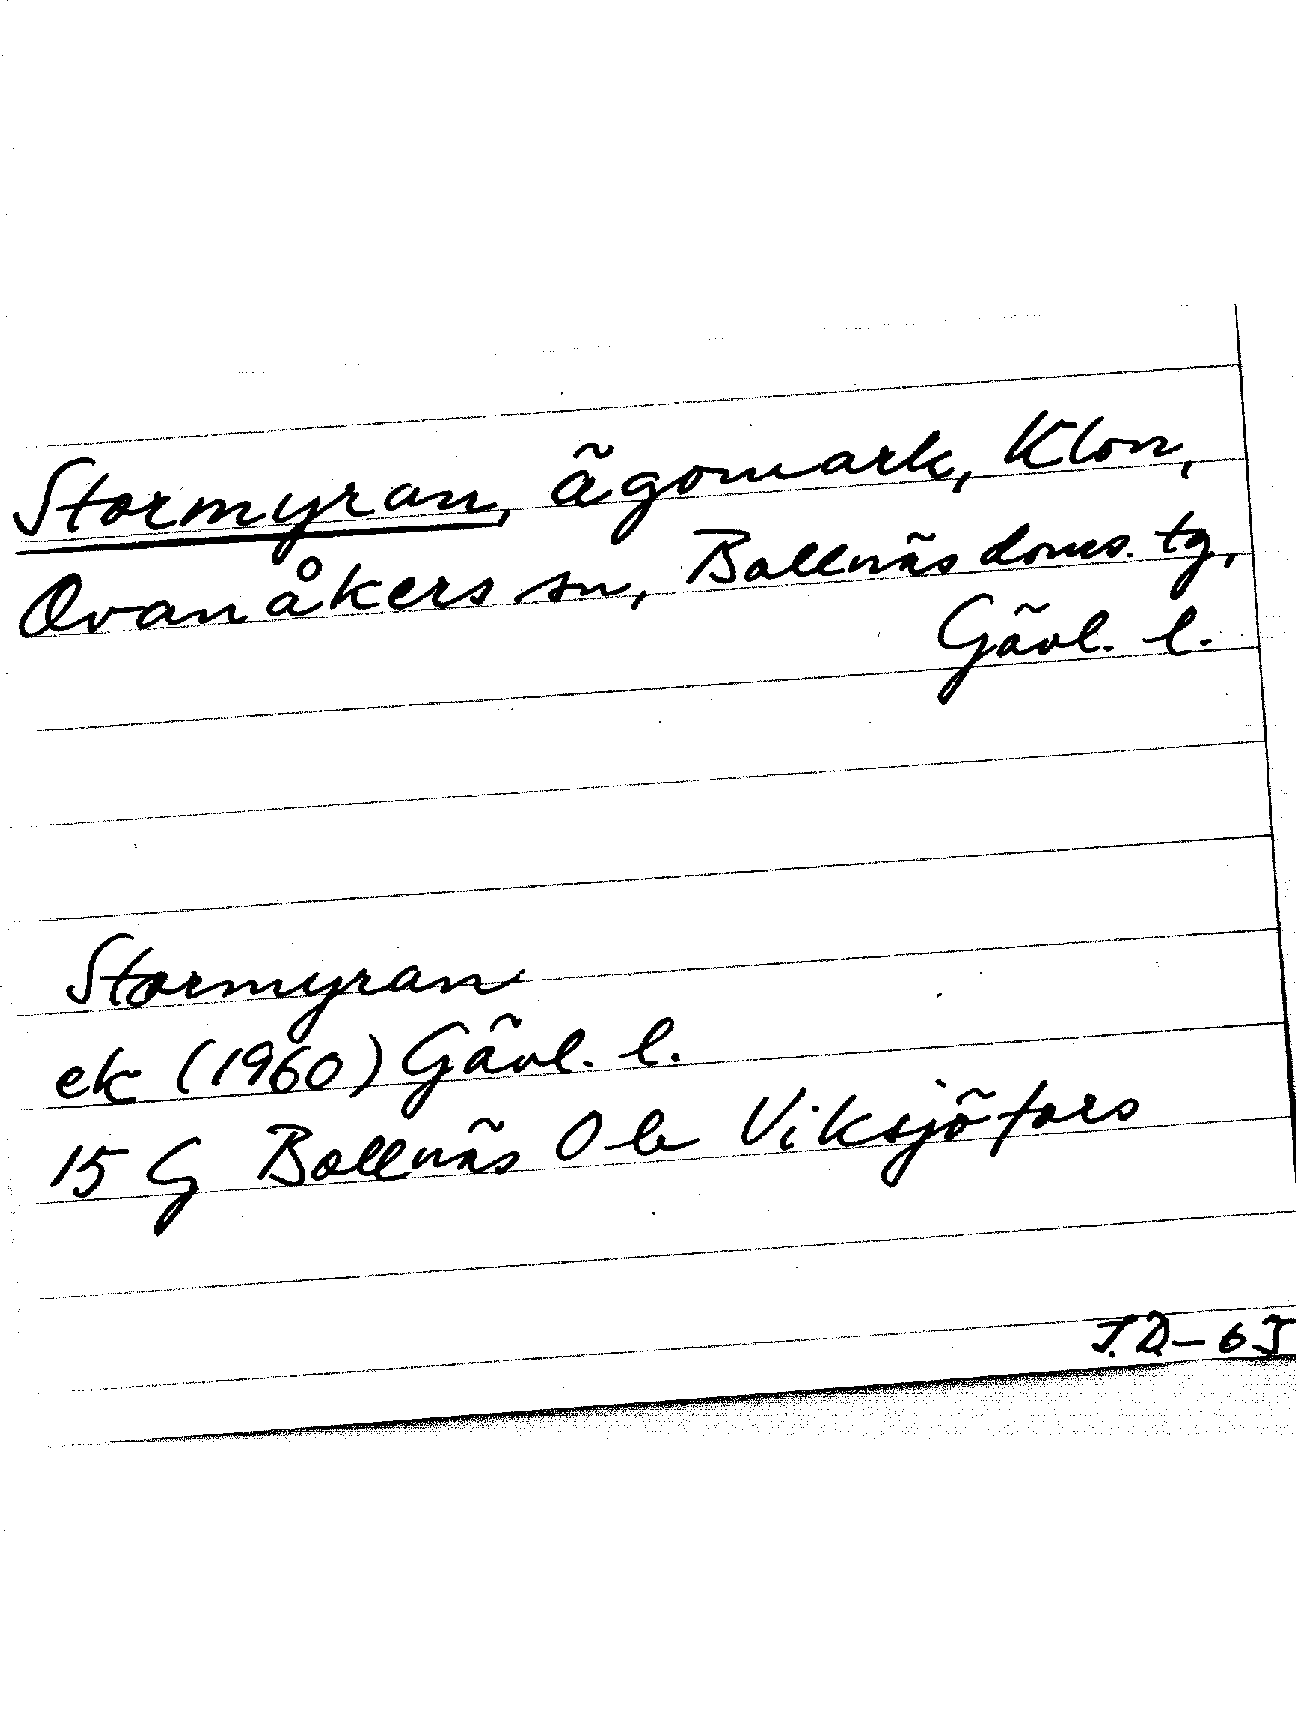 Stormyran, ägomark, Klon,
Ovanåkers sn, Bollnäs doms. tg,
Gävl. l.
Stormyran
ek (1960) Gävl. l.
15 G Bollnäs 0 b Viksjöfors
J.D-65